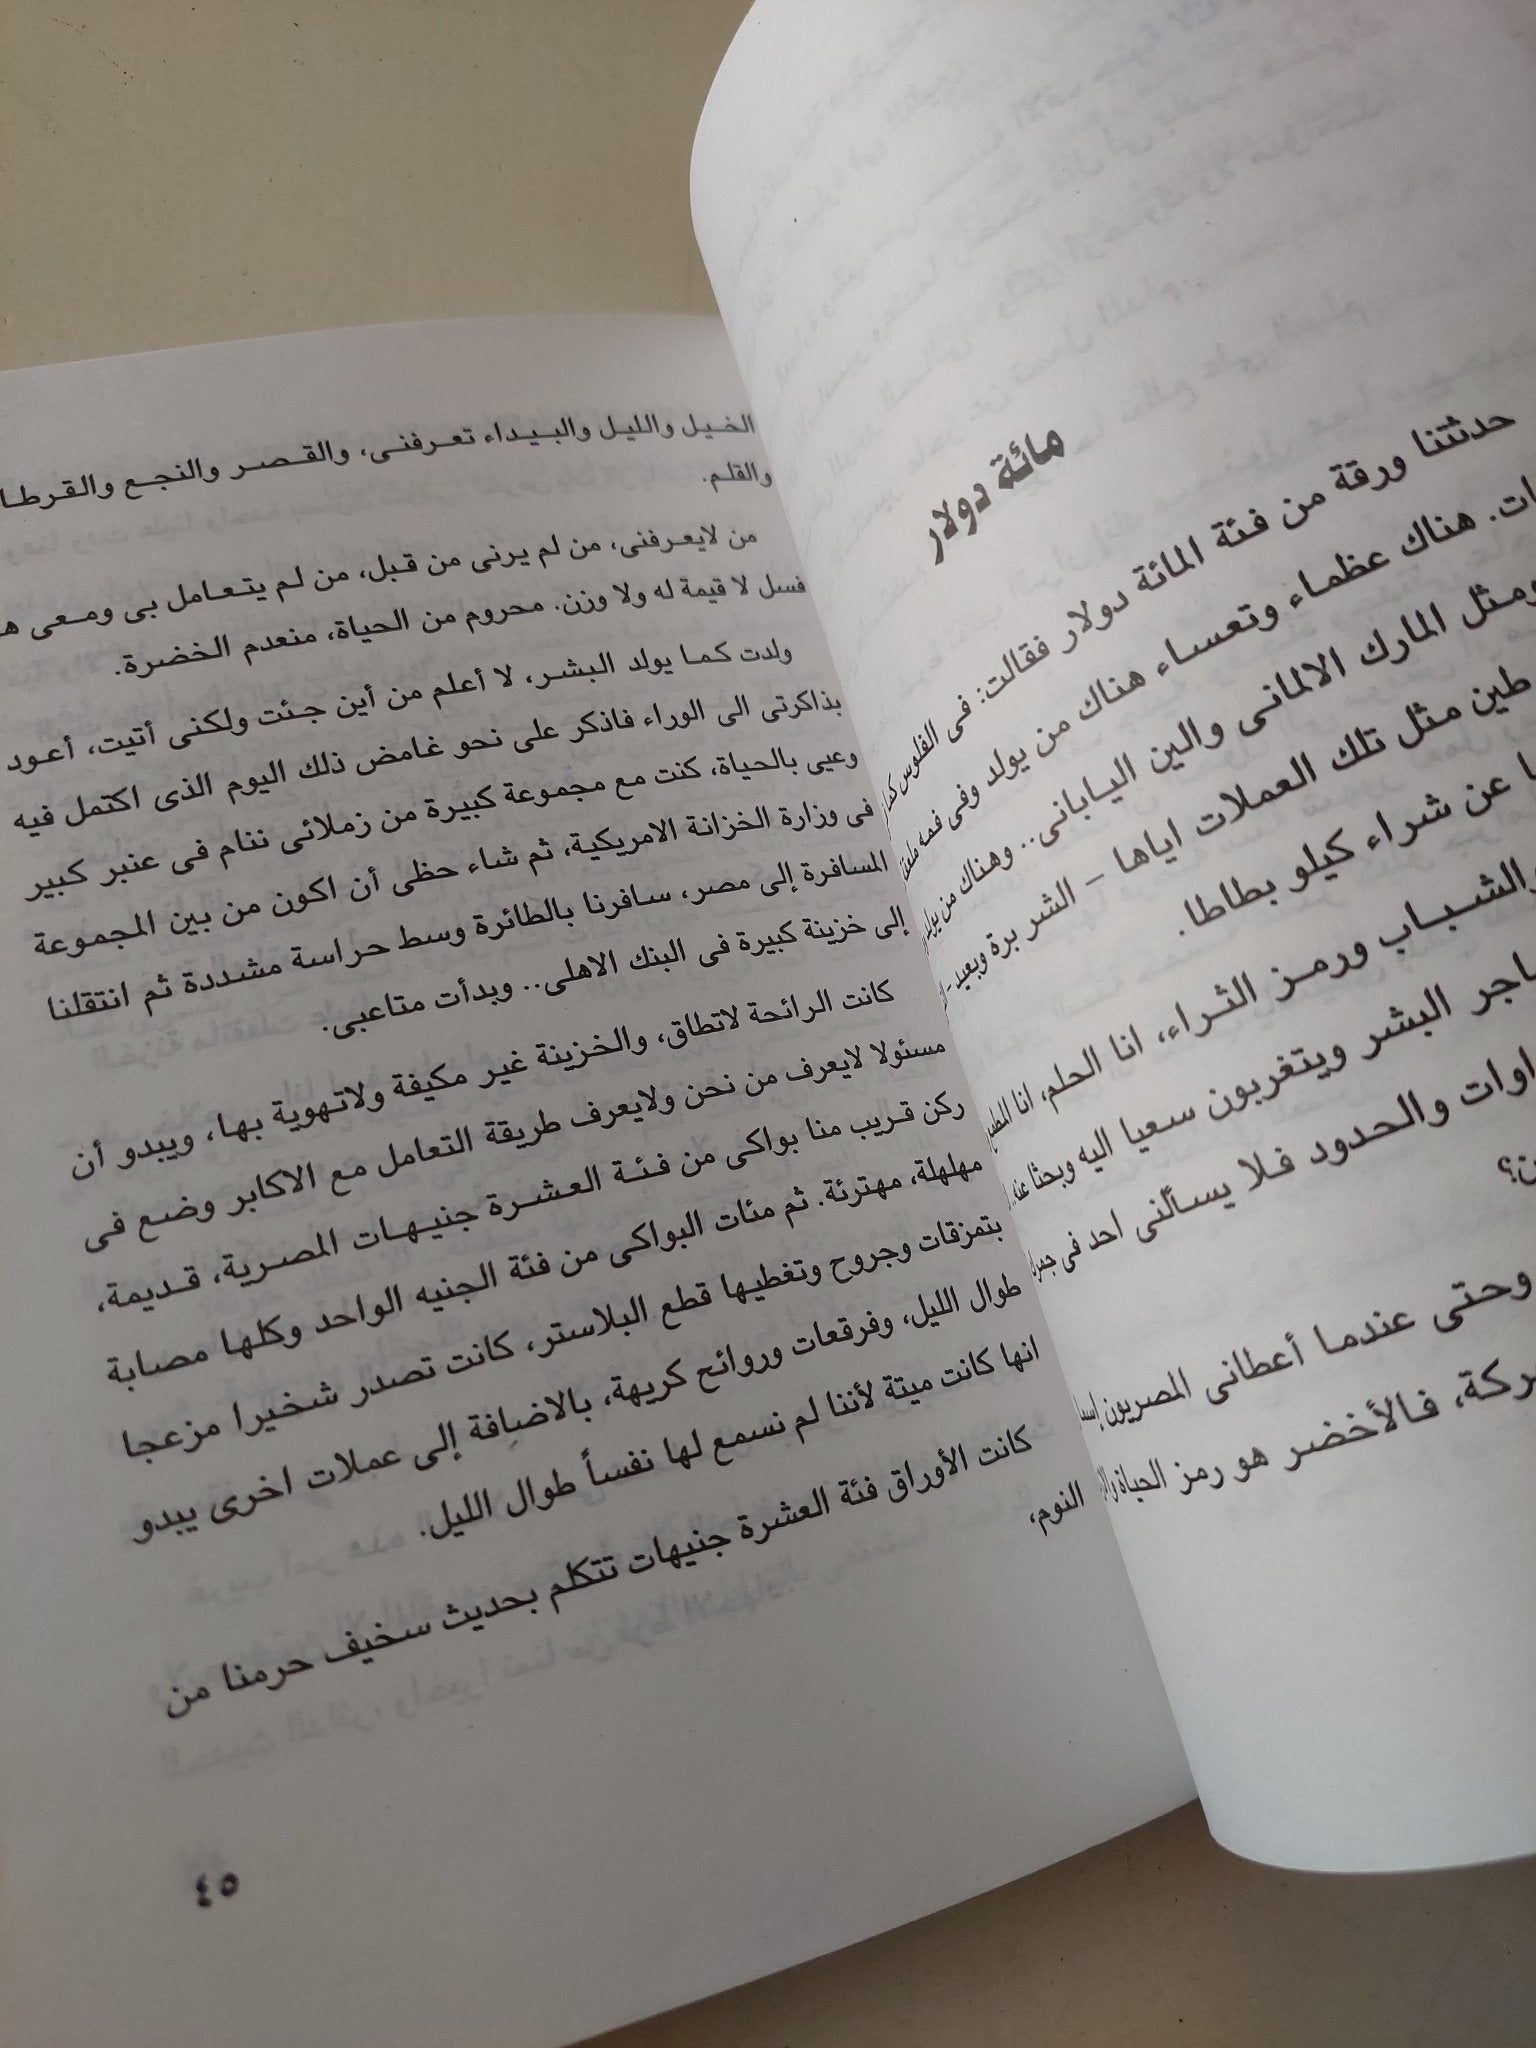 مائة دولار
حدثتنا ورقة من فئة المائة دولار فقالت: فى الفلوس كما
هناك عظماء وتعساء هناك من يولد وفى فمه ملعقة
ومثل المارك الالمانى والين اليابانى.. وهناك من يولد
طين مثل تلك العملات اياها - الشر برة وبعيد -
عن شراء كيلو بطاطا.
والشباب ورمز الثراء، انا الحلم، انا
البشر ويتغربون سعيا اليه وبحثا عنه
والحدود فلا يسألنى احد فى
وحتى عندما أعطانى المصريون
فالأخضر هو رمز الحياة
الخيل والليل والبيداء تعرفنى، والقصر والنجع
والقلم.
من لايعرفنى، من لم يرنى من قبل، من لم يتعامل بى ومعى
فسل لا قيمة له ولا وزن. محروم من الحياة، منعدم الخضرة.
ولدت كما يولد البشر، لا أعلم من أين جئت ولكنى أتيت، أعود
بذاكرتى الى الوراء فاذكر على نحو غامض ذلك اليوم الذى اكتمل فيه
وعيى بالحياة، كنت مع مجموعة كبيرة من زملائى ننام فى عنبر كبير
فى وزارة الخزانة الامريكية، ثم شاء حظى أن اكون من بين المجموعة
المسافرة إلى مصر، سافرنا بالطائرة وسط حراسة مشددة ثم انتقلنا
إلى خزينة كبيرة فى البنك الاهلى.. وبدأت متاعبى.
كانت الرائحة لاتطاق، والخزينة غير مكيفة ولاتهوية بها، ويبدو أن
مسئولا لايعرف من نحن ولايعرف طريقة التعامل مع الاكابر وضع فى
ركن قريب منا بواكى من فئة العشرة جنيهات المصرية، قديمة،
مهلهلة، مهترئة. ثم مئات البواكى من فئة الجنيه الواحد وكلها مصابة
بتمزقات وجروح وتغطيها قطع البلاستر، كانت تصدر شخيرا مزعجا
طوال الليل، وفرقعات وروائح كريهة، بالاضافة إلى عملات اخرى يبدو
انها كانت ميتة لأننا لم نسمع لها نفساً طوال الليل.
كانت الأوراق فئة العشرة جنيهات تتكلم بحديث سخيف حرمنا من
النوم،
٤٥